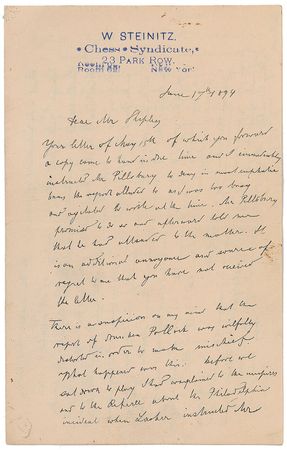 W. STEINITZ.
Chess Syndicate,
23 PARK ROW.
New York
June 17th 1894
Dear Mr
Your letter of May 15th of which you forward
a copy came to hand in due time and I immediately
instructed Mr Pillsbury to deny in most emphatic
terms the report alluded to as I was too busy
and agitated to write at the time. Mr Pillsbury
promised to do so and afterward told me
that he had attended to the matter. It
is an additional annoyance and source of
regret to me that you have not received
the letter.
There is a suspicion on my mind that the
report of Pollock was wilfully
distorted in order to make mischief
What happened was this: before we
sat down to play I had complained to the umpires
and to the Referee about the Philadelphia
incident when Lasker instructed Mr